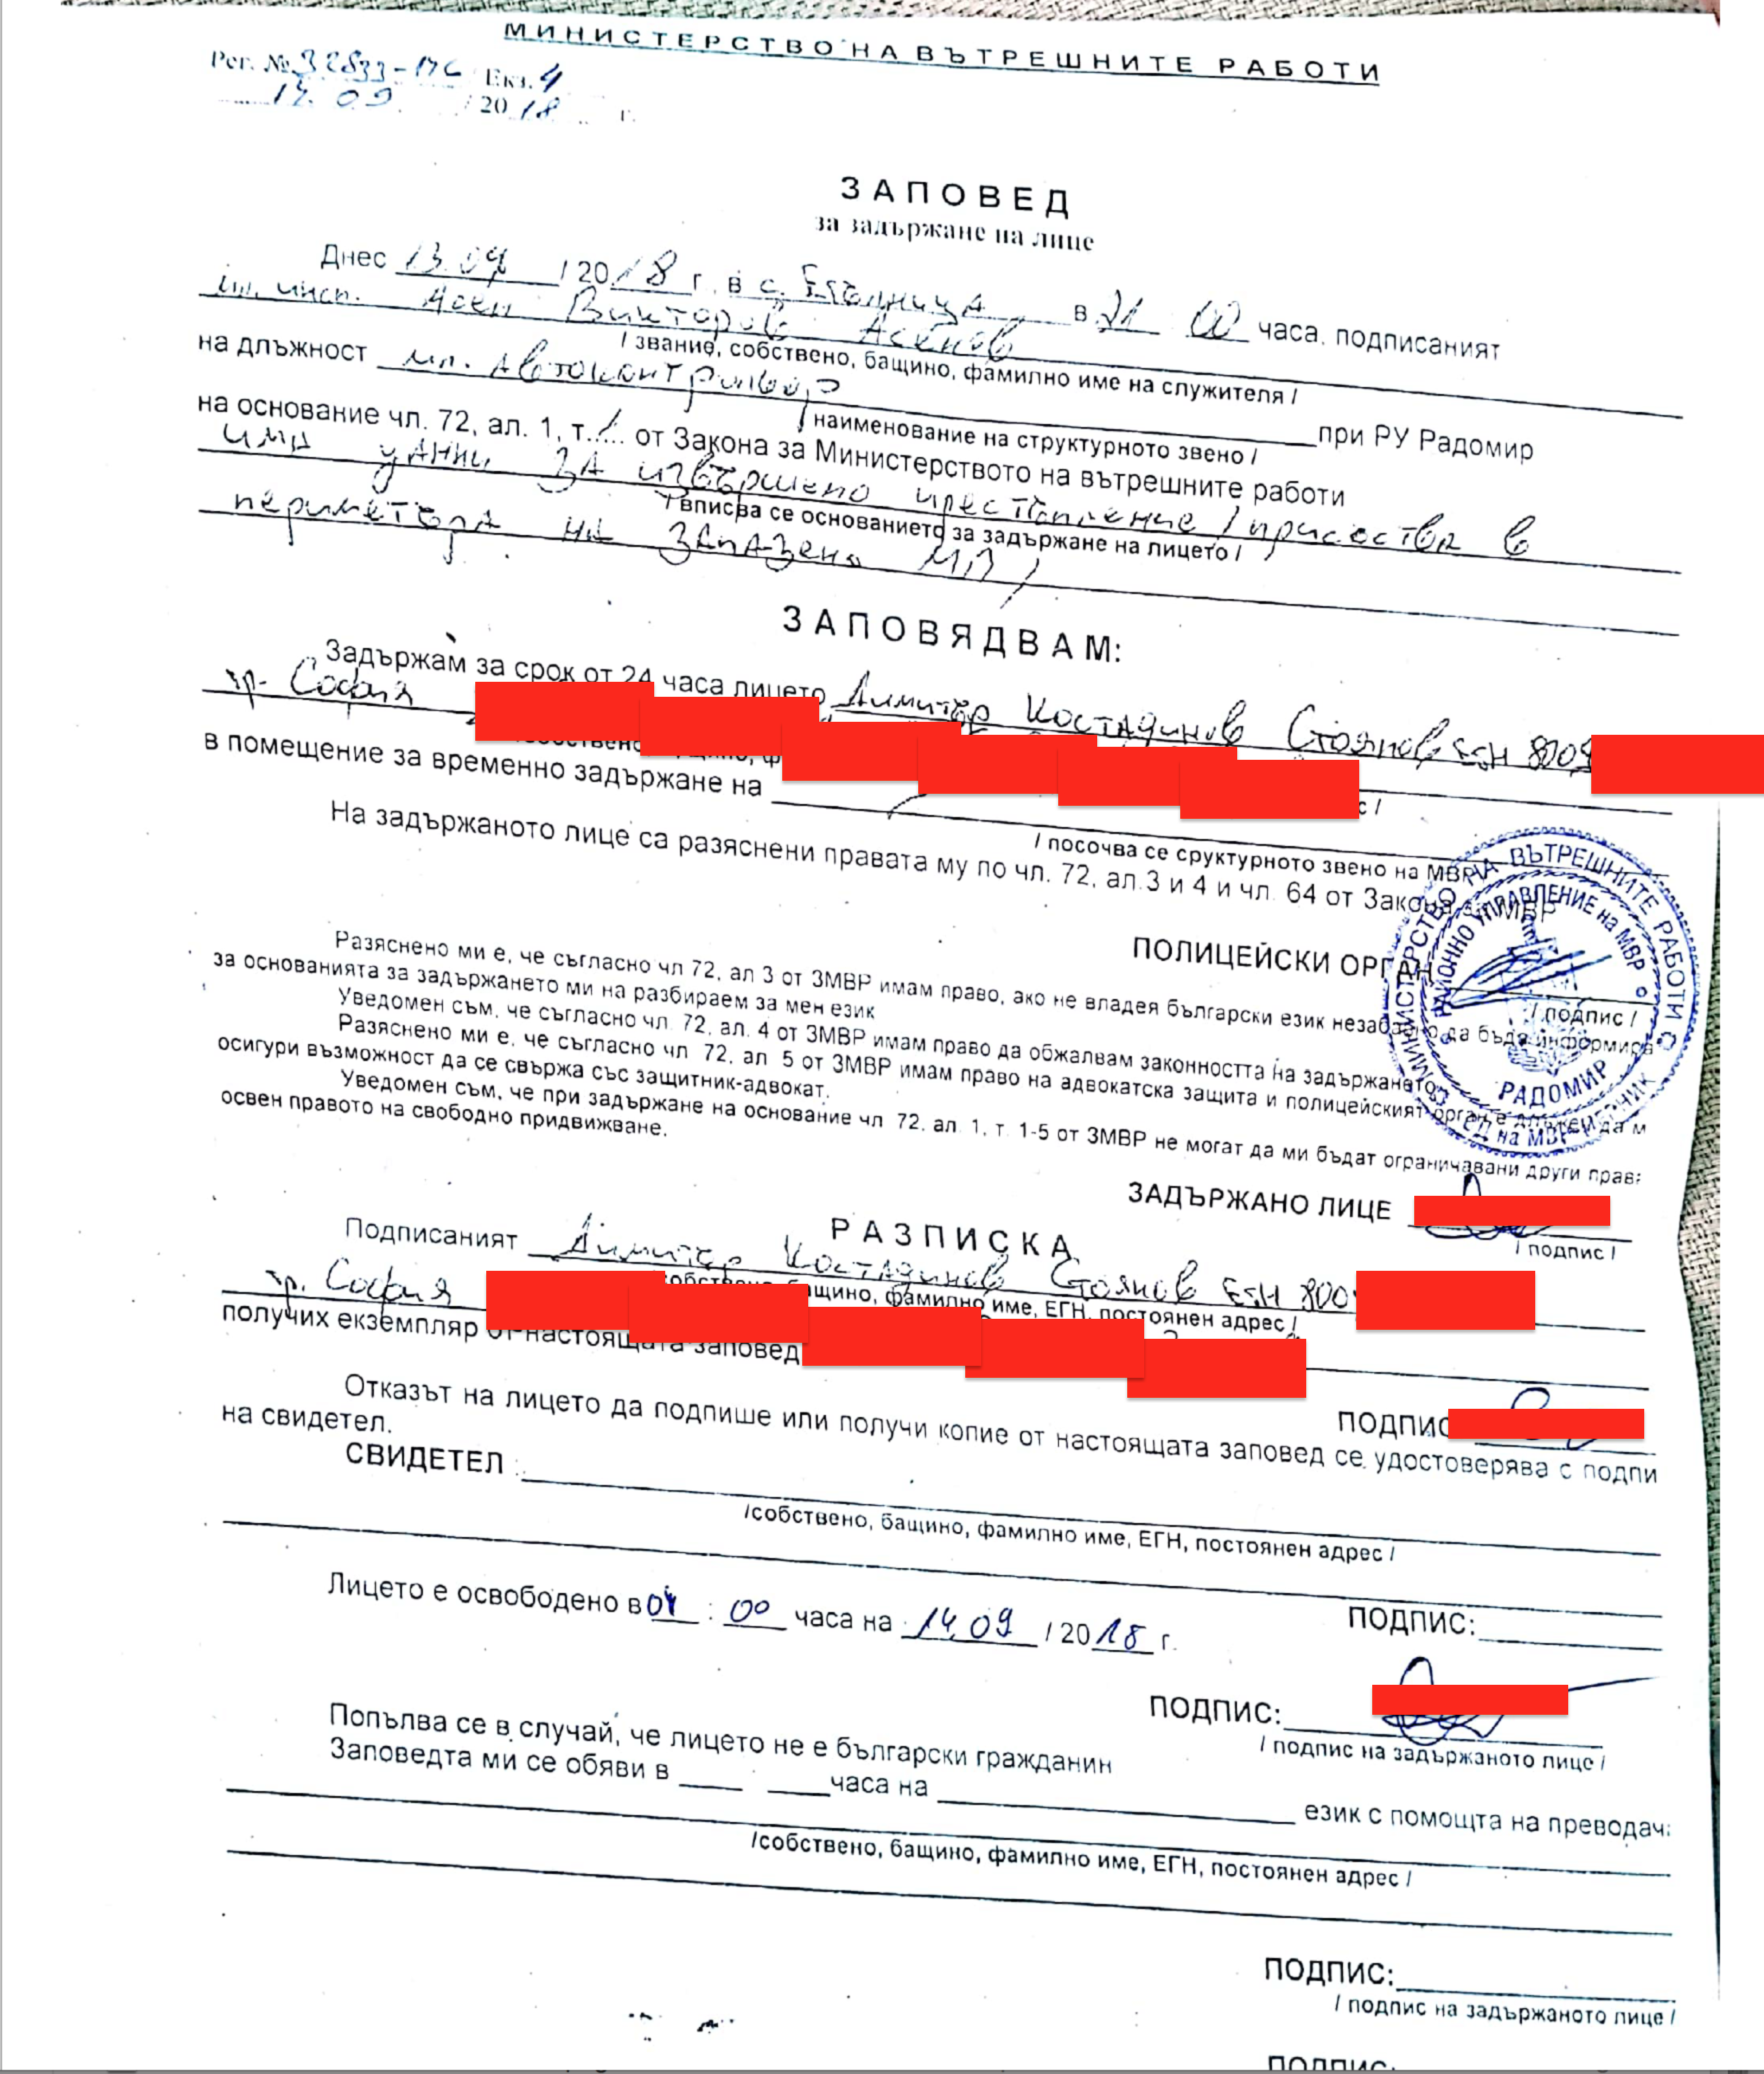 МИНИСТЕРСТВО НА ВЪТРЕШНИТЕ РАБОТИ
Рег. № 32833-176 / Екз. 4
14.09. / 2018 г.
ЗАПОВЕД
за задържане на лице
Днес 13.09 / 2018 г. в с. Егълница в 21 00 часа, подписаният
мл. инсп. Асен Викторов Асенов
/ звание, собствено, бащино, фамилно име на служителя /
на длъжност мл. Автоконтрольор при РУ Радомир
/ наименование на структурното звено /
на основание чл. 72, ал. 1, т. 1 от Закона за Министерството на вътрешните работи
има данни за извършено престъпление / присъства в
/ вписва се основанието за задържане на лицето /
периметъра на запазено МП /
ЗАПОВЯДВАМ:
Задържам за срок от 24 часа лицето Димитър Костадинов Стоянов ЕГН 8009
гр. София
с /
в помещение за временно задържане на
/ посочва се сруктурното звено на МВР /
На задържаното лице са разяснени правата му по чл. 72, ал.3 и 4 и чл. 64 от Закона за МВР
ПОЛИЦЕЙСКИ ОРГАН
/ подпис /
МИНИСТЕРСТВО НА ВЪТРЕШНИТЕ РАБОТИ
РАЙОННО УПРАВЛЕНИЕ на МВР
РАДОМИР
Разяснено ми е, че съгласно чл 72, ал 3 от ЗМВР имам право, ако не владея български език незабавно да бъда информира
за основанията за задържането ми на разбираем за мен език
Уведомен съм, че съгласно чл. 72, ал. 4 от ЗМВР имам право да обжалвам законността на задържането
Разяснено ми е, че съгласно чл 72, ал 5 от ЗМВР имам право на адвокатска защита и полицейският орган е длъжен да м
осигури възможност да се свържа със защитник-адвокат.
Уведомен съм, че при задържане на основание чл 72, ал. 1, т. 1-5 от ЗМВР не могат да ми бъдат ограничавани други прав
освен правото на свободно придвижване.
ЗАДЪРЖАНО ЛИЦЕ
/ подпис /
РАЗПИСКА
Подписаният Димитър Костадинов Стоянов ЕГН 800
гр. София
бащино, фамилно име, ЕГН, постоянен адрес /
получих екземпляр от настоящата заповед
ПОДПИС
Отказът на лицето да подпише или получи копие от настоящата заповед се удостоверява с подпи
на свидетел.
СВИДЕТЕЛ :
/собствено, бащино, фамилно име, ЕГН, постоянен адрес /
ПОДПИС:
Лицето е освободено в 04 : 00 часа на 14.09 / 2018 г.
ПОДПИС:
/ подпис на задържаното лице /
Попълва се в случай, че лицето не е български гражданин
Заповедта ми се обяви в часа на език с помощта на преводач
/собствено, бащино, фамилно име, ЕГН, постоянен адрес /
ПОДПИС:
/ подпис на задържаното лице /
ПОДПИС: